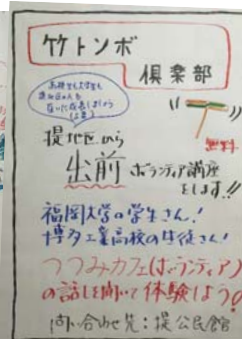 竹トンボ
倶楽部
高校生も大学生も
無料
提地区から
出前 ボランティア講座
をします!!
福岡大学の学生さん!
博多工業高校の生徒さん!
つつみカフェ(ボランティア)
の話しを聞いて体験しよう
問い合わせ先:提公民館